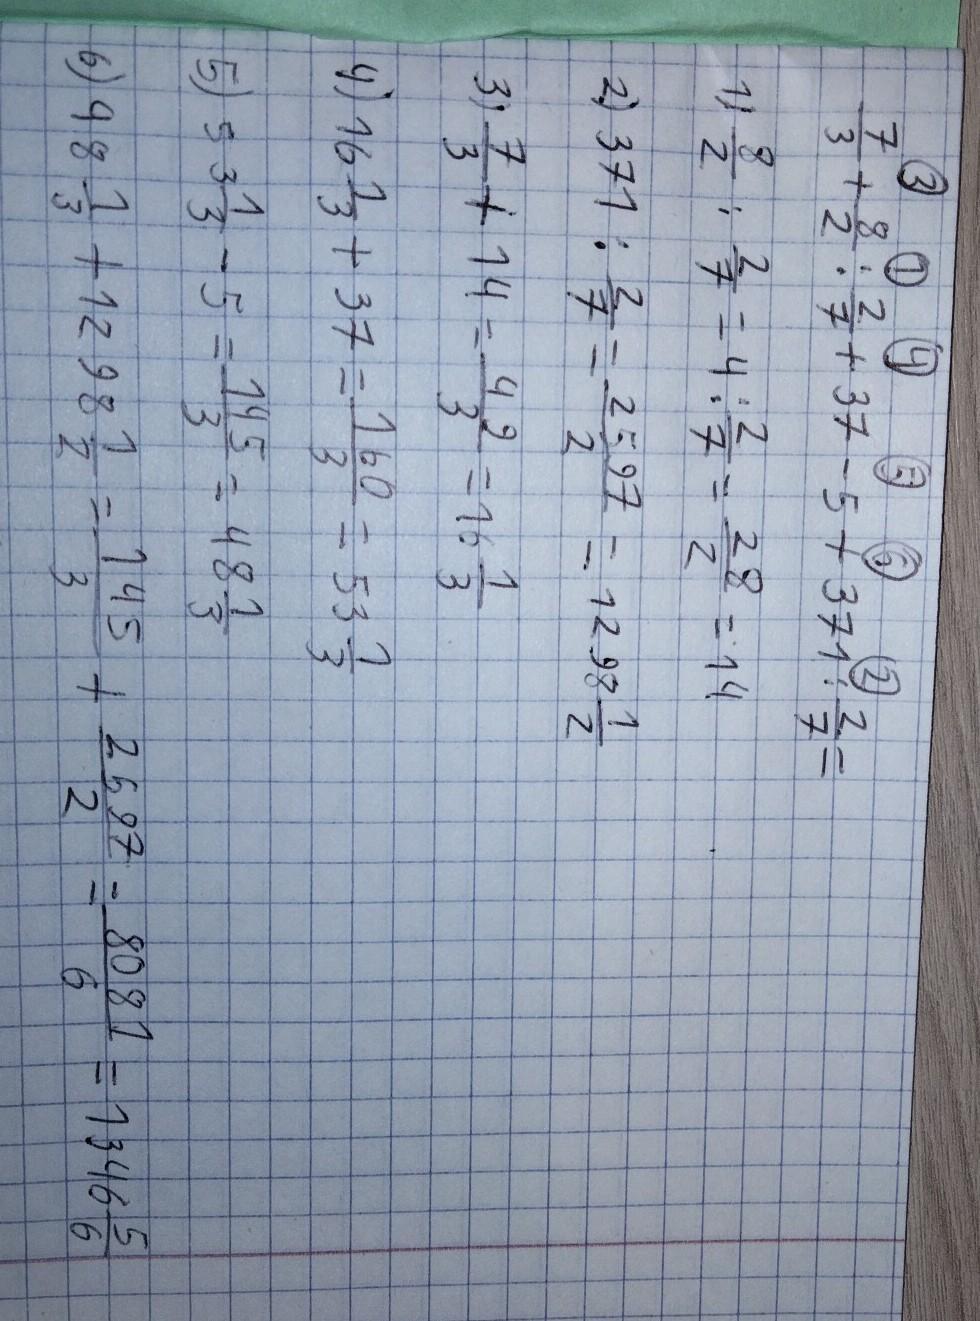 ③ ① ④ ⑤ ⑥ ②
7/3 + 8/2 : 2/7 + 37 - 5 + 371 : 2/7 =
1) 8/2 : 2/7 = 4 : 2/7 = 28/2 = 14
2) 371 : 2/7 = 2597/2 = 1298 1/2
3) 7/3 + 14 = 49/3 = 16 1/3
4) 16 1/3 + 37 = 160/3 = 53 1/3
5) 53 1/3 - 5 = 145/3 = 48 1/3
6) 48 1/3 + 1298 1/2 = 145/3 + 2597/2 = 8081/6 = 1346 5/6